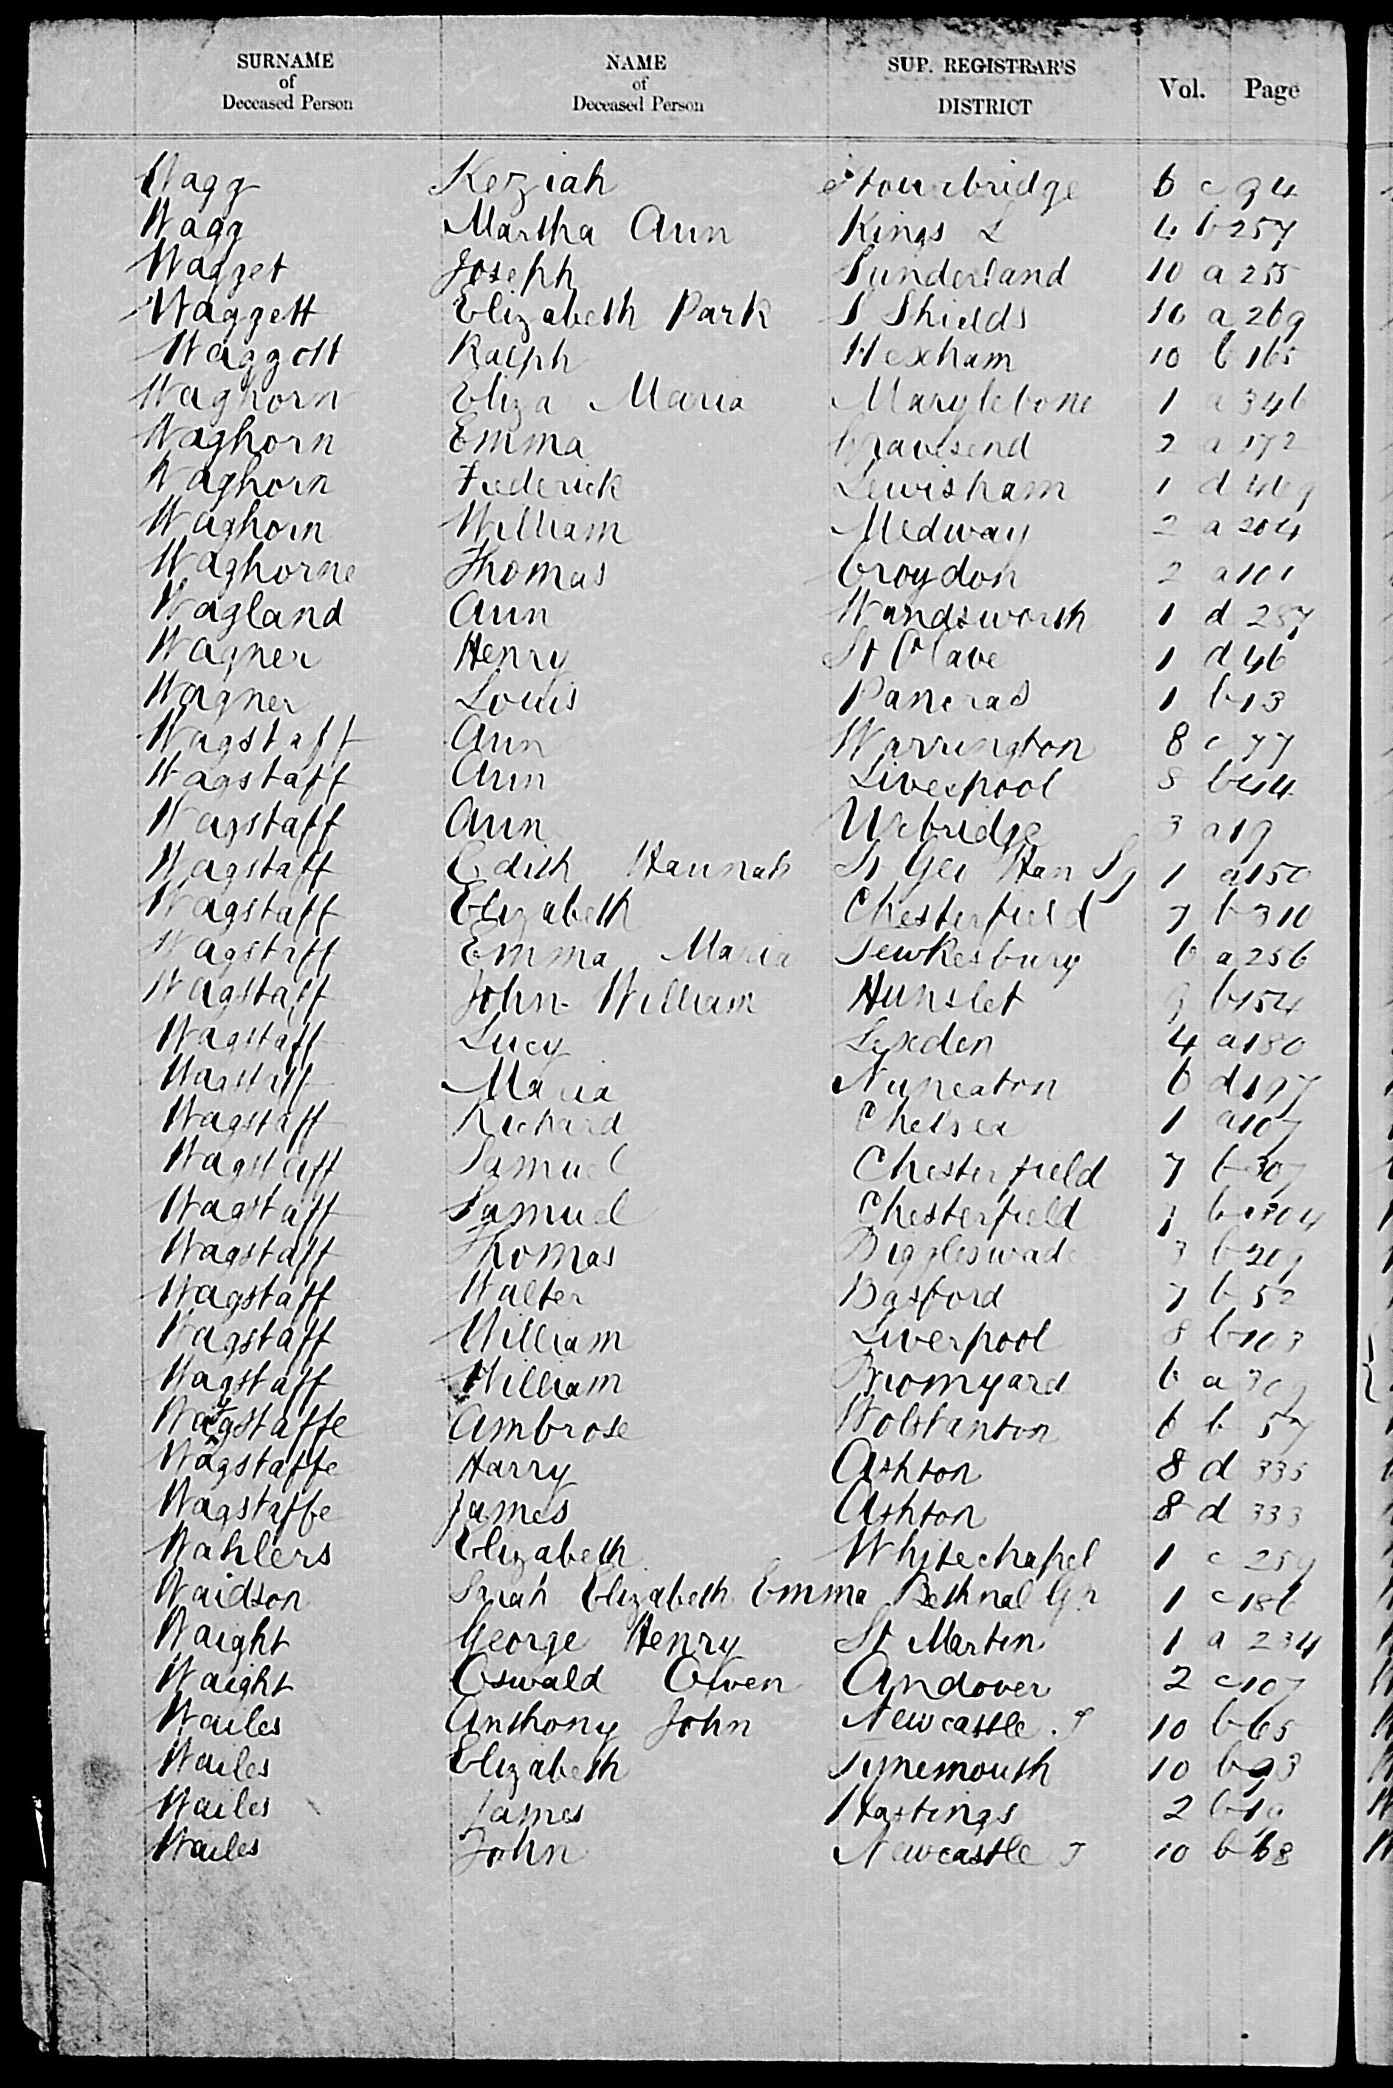 SURNAME of Deceased Person NAME of Deceased Person SUP. REGISTRAR'S DISTRICT Vol. Page
Wagg Keziah Stourbridge 6 c 94
Wagg Martha Ann Kings L 4 b 257
Wagget Joseph Sunderland 10 a 255
Waggett Elizabeth Park S Shields 10 a 269
Waggott Ralph Hexham 10 b 165
Waghorn Eliza Maria Marylebone 1 a 346
Waghorn Emma Gravesend 2 a 172
Waghorn Frederick Lewisham 1 d
Waghorn William Medway 2 a 204
Waghorne Thomas Croydon 2 a 101
Wagland Ann Wandsworth 1 d 287
Wagner Henry St Olave 1 d 46
Wagner Louis Pancras 1 b 13
Wagstaff Ann Warrington 8 c 77
Wagstaff Ann Liverpool 8 b 44
Wagstaff Ann Uxbridge 3 a 19
Wagstaff Edith Hannah St Geo Han Sq 1 a 150
Wagstaff Elizabeth Chesterfield 7 b 310
Wagstaff Emma Maria Tewkesbury 6 a 256
Wagstaff John William Hunslet 9 b 154
Wagstaff Lucy Lexden 4 a 180
Wagstaff Maria Nuneaton 6 d 197
Wagstaff Richard Chelsea 1 a 107
Wagstaff Samuel Chesterfield 7 b 307
Wagstaff Samuel Chesterfield 7 b 304
Wagstaff Thomas Biggleswade 3 b 209
Wagstaff Walter Basford 7 b 52
Wagstaff William Liverpool 8 b 103
Wagstaff William Bromyard 6 a 309
Wagstaffe Ambrose Wolstanton 6 b 57
Wagstaffe Harry Ashton 8 d 335
Wagstaffe James Ashton 8 d 333
Wahlers Elizabeth Whitechapel 1 c 259
Waidson Sarah Elizabeth Emma Bethnal Gn 1 c 186
Waight George Henry St Martin 1 a 234
Waight Oswald Owen Andover 2 c 107
Wailes Anthony John Newcastle T 10 b 65
Wailes Elizabeth Tynemouth 10 b 93
Wailes James Hastings 2 b
Wailes John Newcastle T 10 b 68